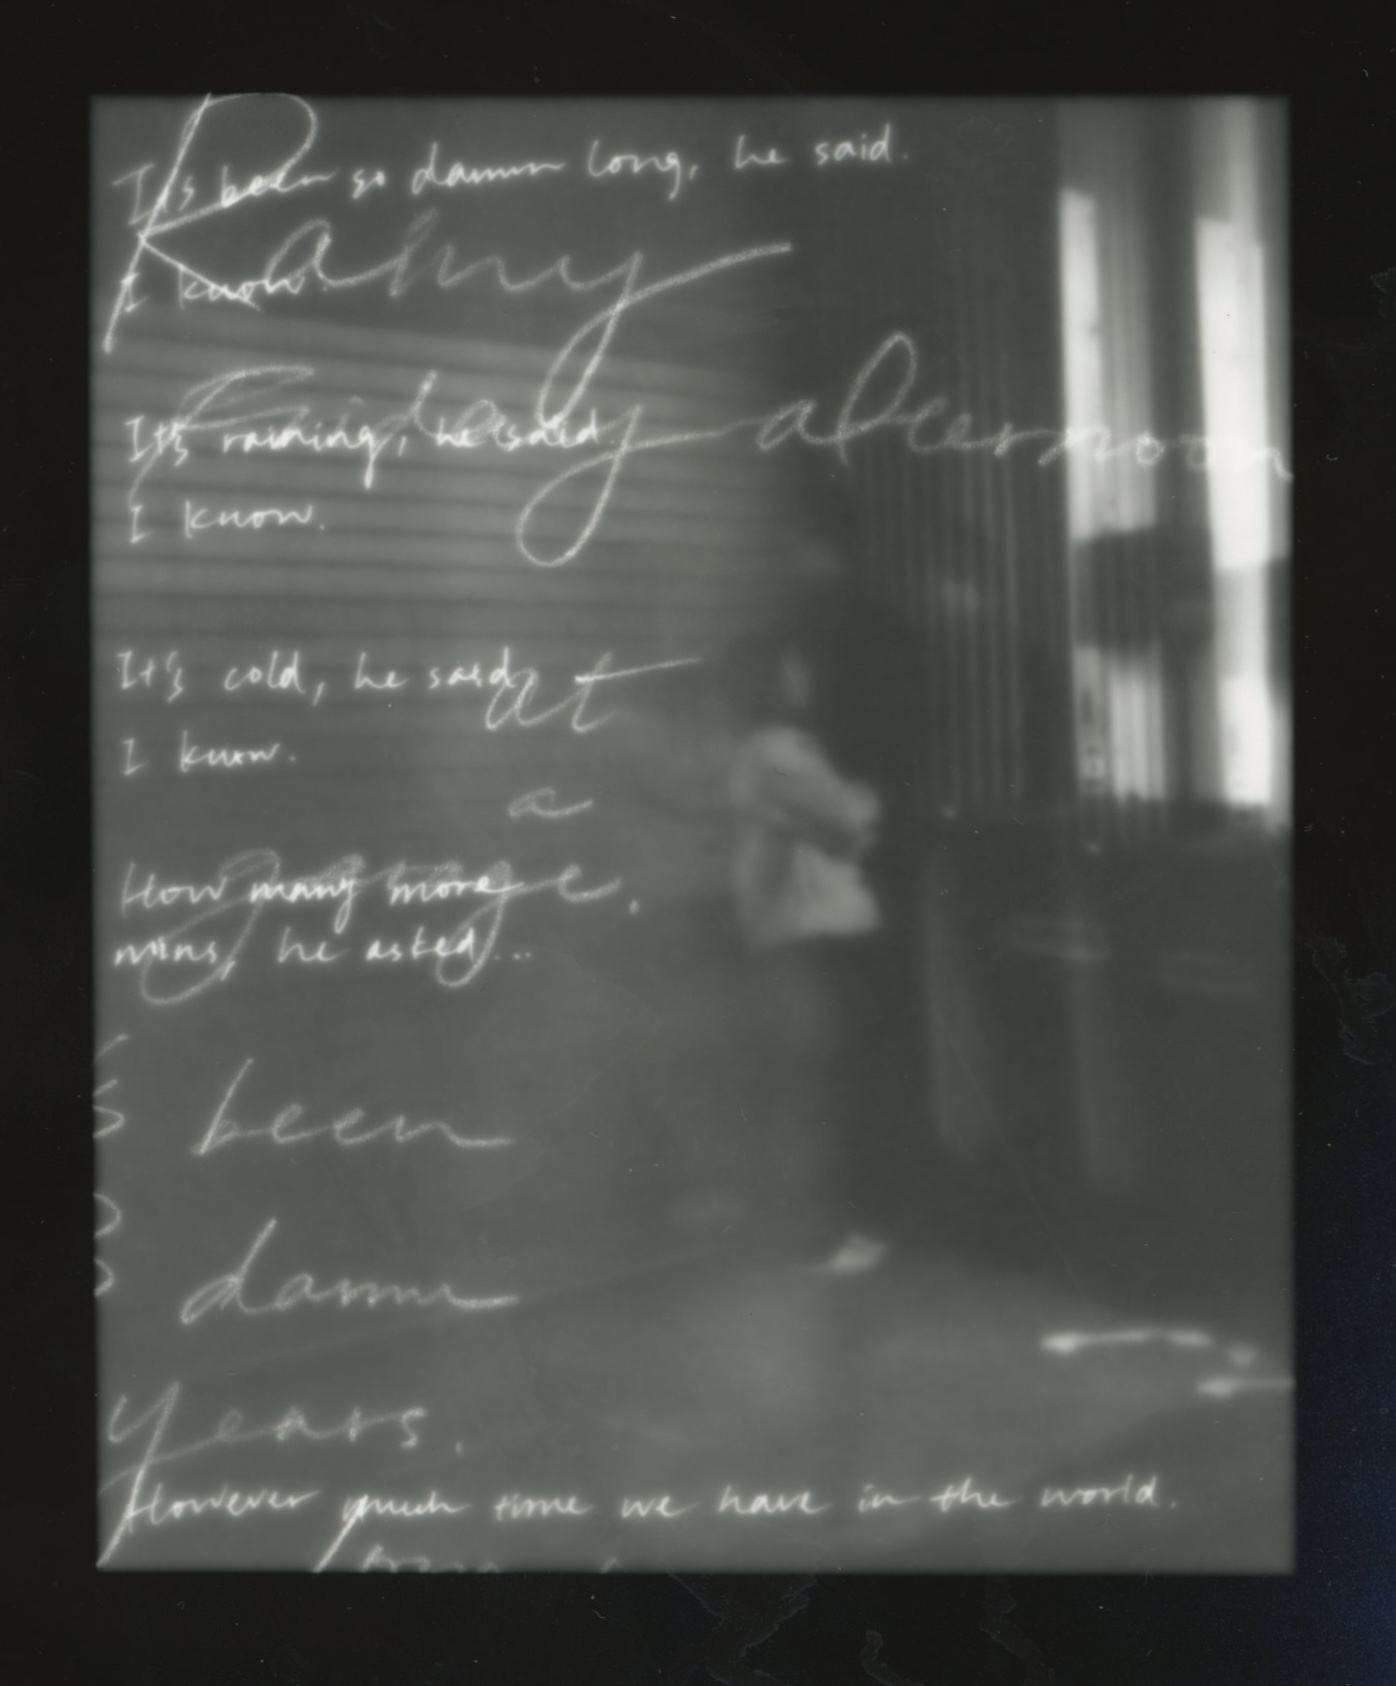 It's been so damn long, he said.
Rainy
I know.
Friday afternoon
It's raining, he said.
I know.
It's cold, he said.
at
I know.
a
garage.
How many more
mins, he asked...
been
damn
years.
However much time we have in the world.